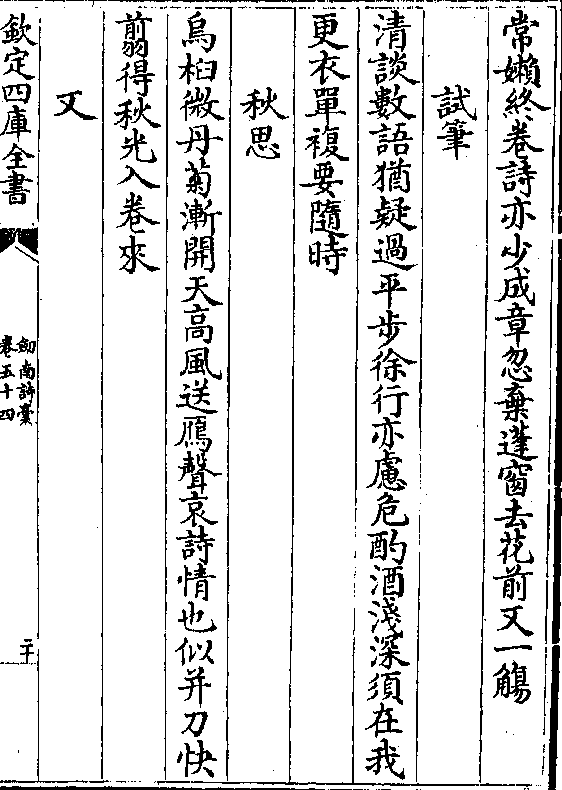 常嬾終卷詩亦少成章忽棄蓬窗去花前又一觴
試筆
清談數語猶疑過平步徐行亦慮危酌酒淺深須在我
更衣單複要隨時
秋思
烏桕微丹菊漸開天高風送鴈聲哀詩情也似并刀快
翦得秋光入卷來
又
欽定四庫全書
劒南詩槀
卷五十四
二十